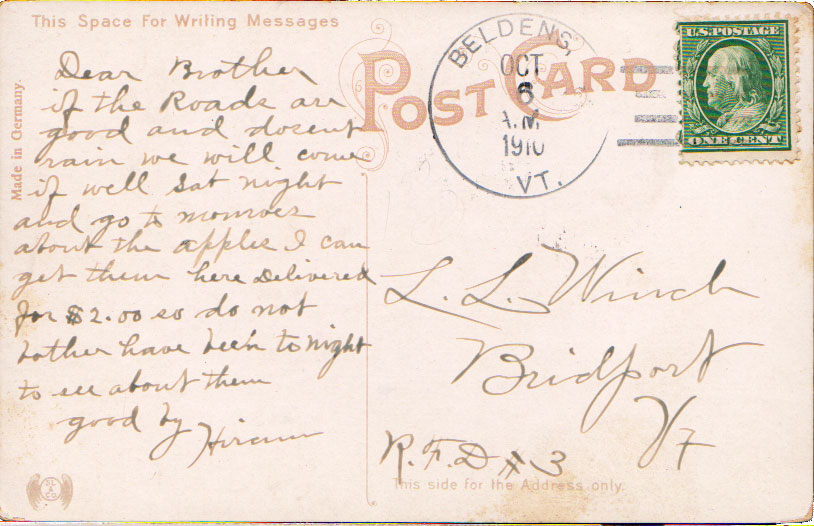 This Space For Writing Messages
POST CARD
Made in Germany.
Dear Brother
if the Roads are
good and dosent
rain we will come
if well Sat night
and go to monroes
about the apples I can
get them here Delivered
for $2.00 so do not
bother have been to night
to see about them
good by
Hiram
BELDENS,
OCT
6
A.M
1910
VT.
U.S. POSTAGE
ONE CENT
L. L. Winch
Bridport
Vt
R.F.D # 3
This side for the Address only.